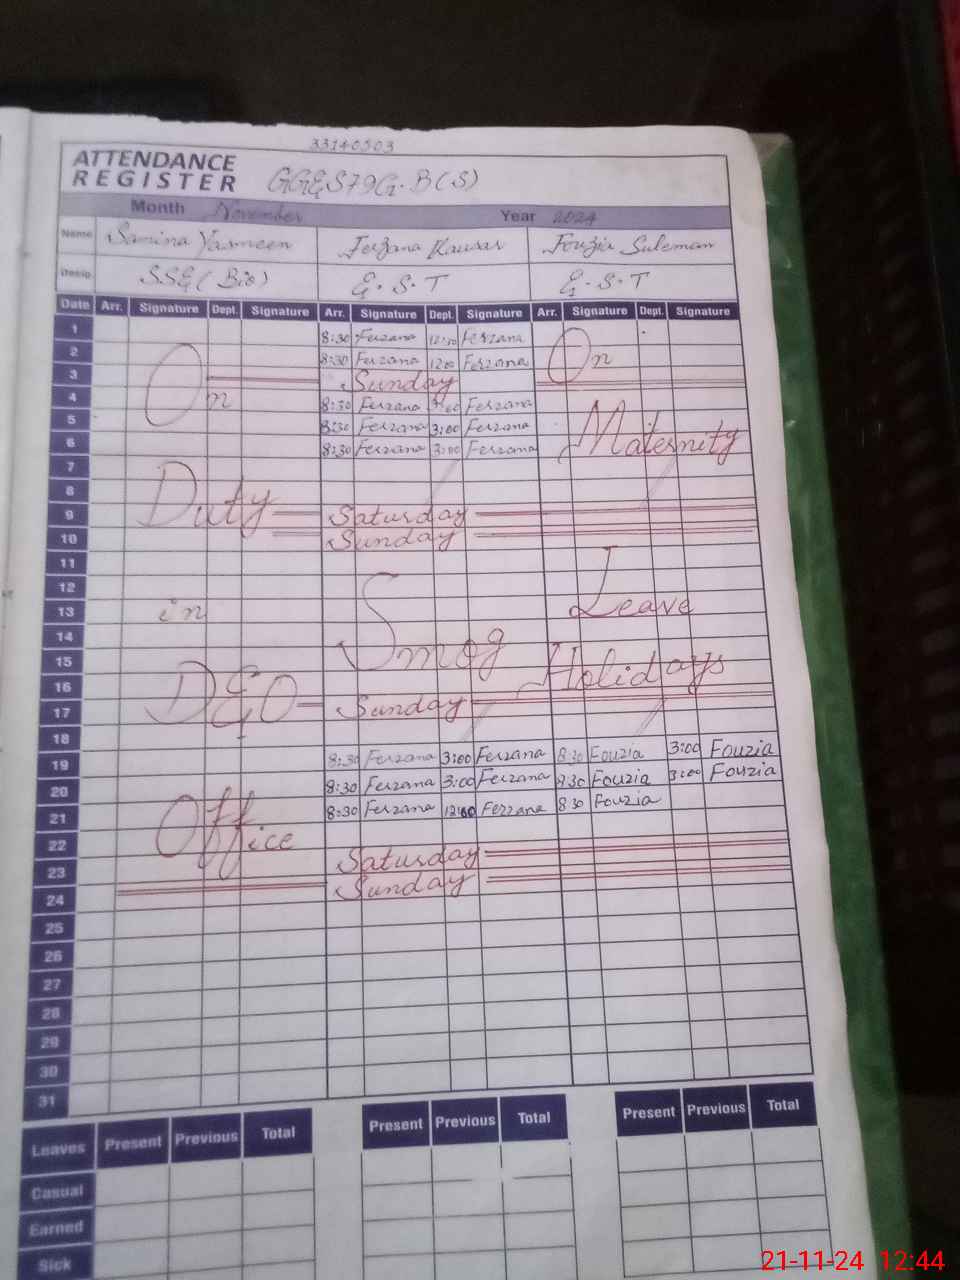 33140503
ATTENDANCE
REGISTER GGES79G.B(S)
Month November Year 2024
Name Samina Yasmeen Ferzana Kausar Fouzia Suleman
Desig. SSE(Bio) E.S.T E.S.T
Date Arr. Signature Dept. Signature Arr. Signature Dept. Signature Arr. Signature Dept. Signature
1 8:30 Ferzana Ferzana
2 8:30 Ferzana 12:00 Ferzana On
3 On Sunday
4 8:30 Ferzana 3:00 Ferzana
5 8:30 Ferzana 3:00 Ferzana
6 8:30 Ferzana 3:00 Ferzana Maternity
7
8
9 Duty Saturday
10 Sunday
11
12
13 in Leave
14
15 Smog
16 Holidays
17 DEO Sunday
18
19 8:30 Ferzana 3:00 Ferzana 8:30 Fouzia 3:00 Fouzia
20 8:30 Ferzana 3:00 Ferzana 830 Fouzia 3:00 Fouzia
21 8:30 Ferzana 12:00 Ferzana 830 Fouzia
22 Office
23 Saturday
24 Sunday
25
26
27
28
29
30
31
Leaves Present Previous Total Present Previous Total Present Previous Total
Casual
Earned
Sick
21-11-24 12:44